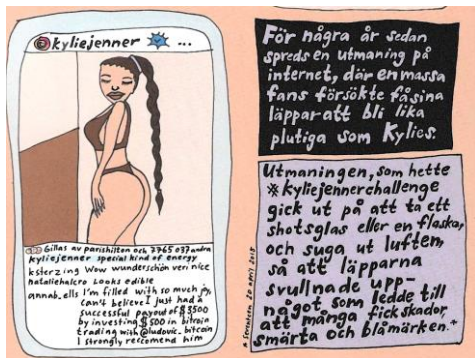 kyliejenner ...
Gillas av parishilton och 7765 037 andra
kyliejenner special kind of energy
ksterzing Wow wunderschön ver nice
nataliehalcro Looks edible
annab.ells I'm filled with so much joy,
can't believe I just had a
successful payout of $3500
by investing $500 in bitcoin
trading with @ludovic_bitcoin
I strongly reccomend him
För några år sedan
spreds en utmaning på
internet, där en massa
fans försökte få sina
läppar att bli lika
plutiga som Kylies.
Utmaningen, som hette
*kyliejennerchallenge
gick ut på att ta ett
shotsglas eller en flaska,
och suga ut luften,
så att läpparna
svullnade upp–
något som ledde till
att många fick skador,
smärta och blåmärken.*
20 april 2015